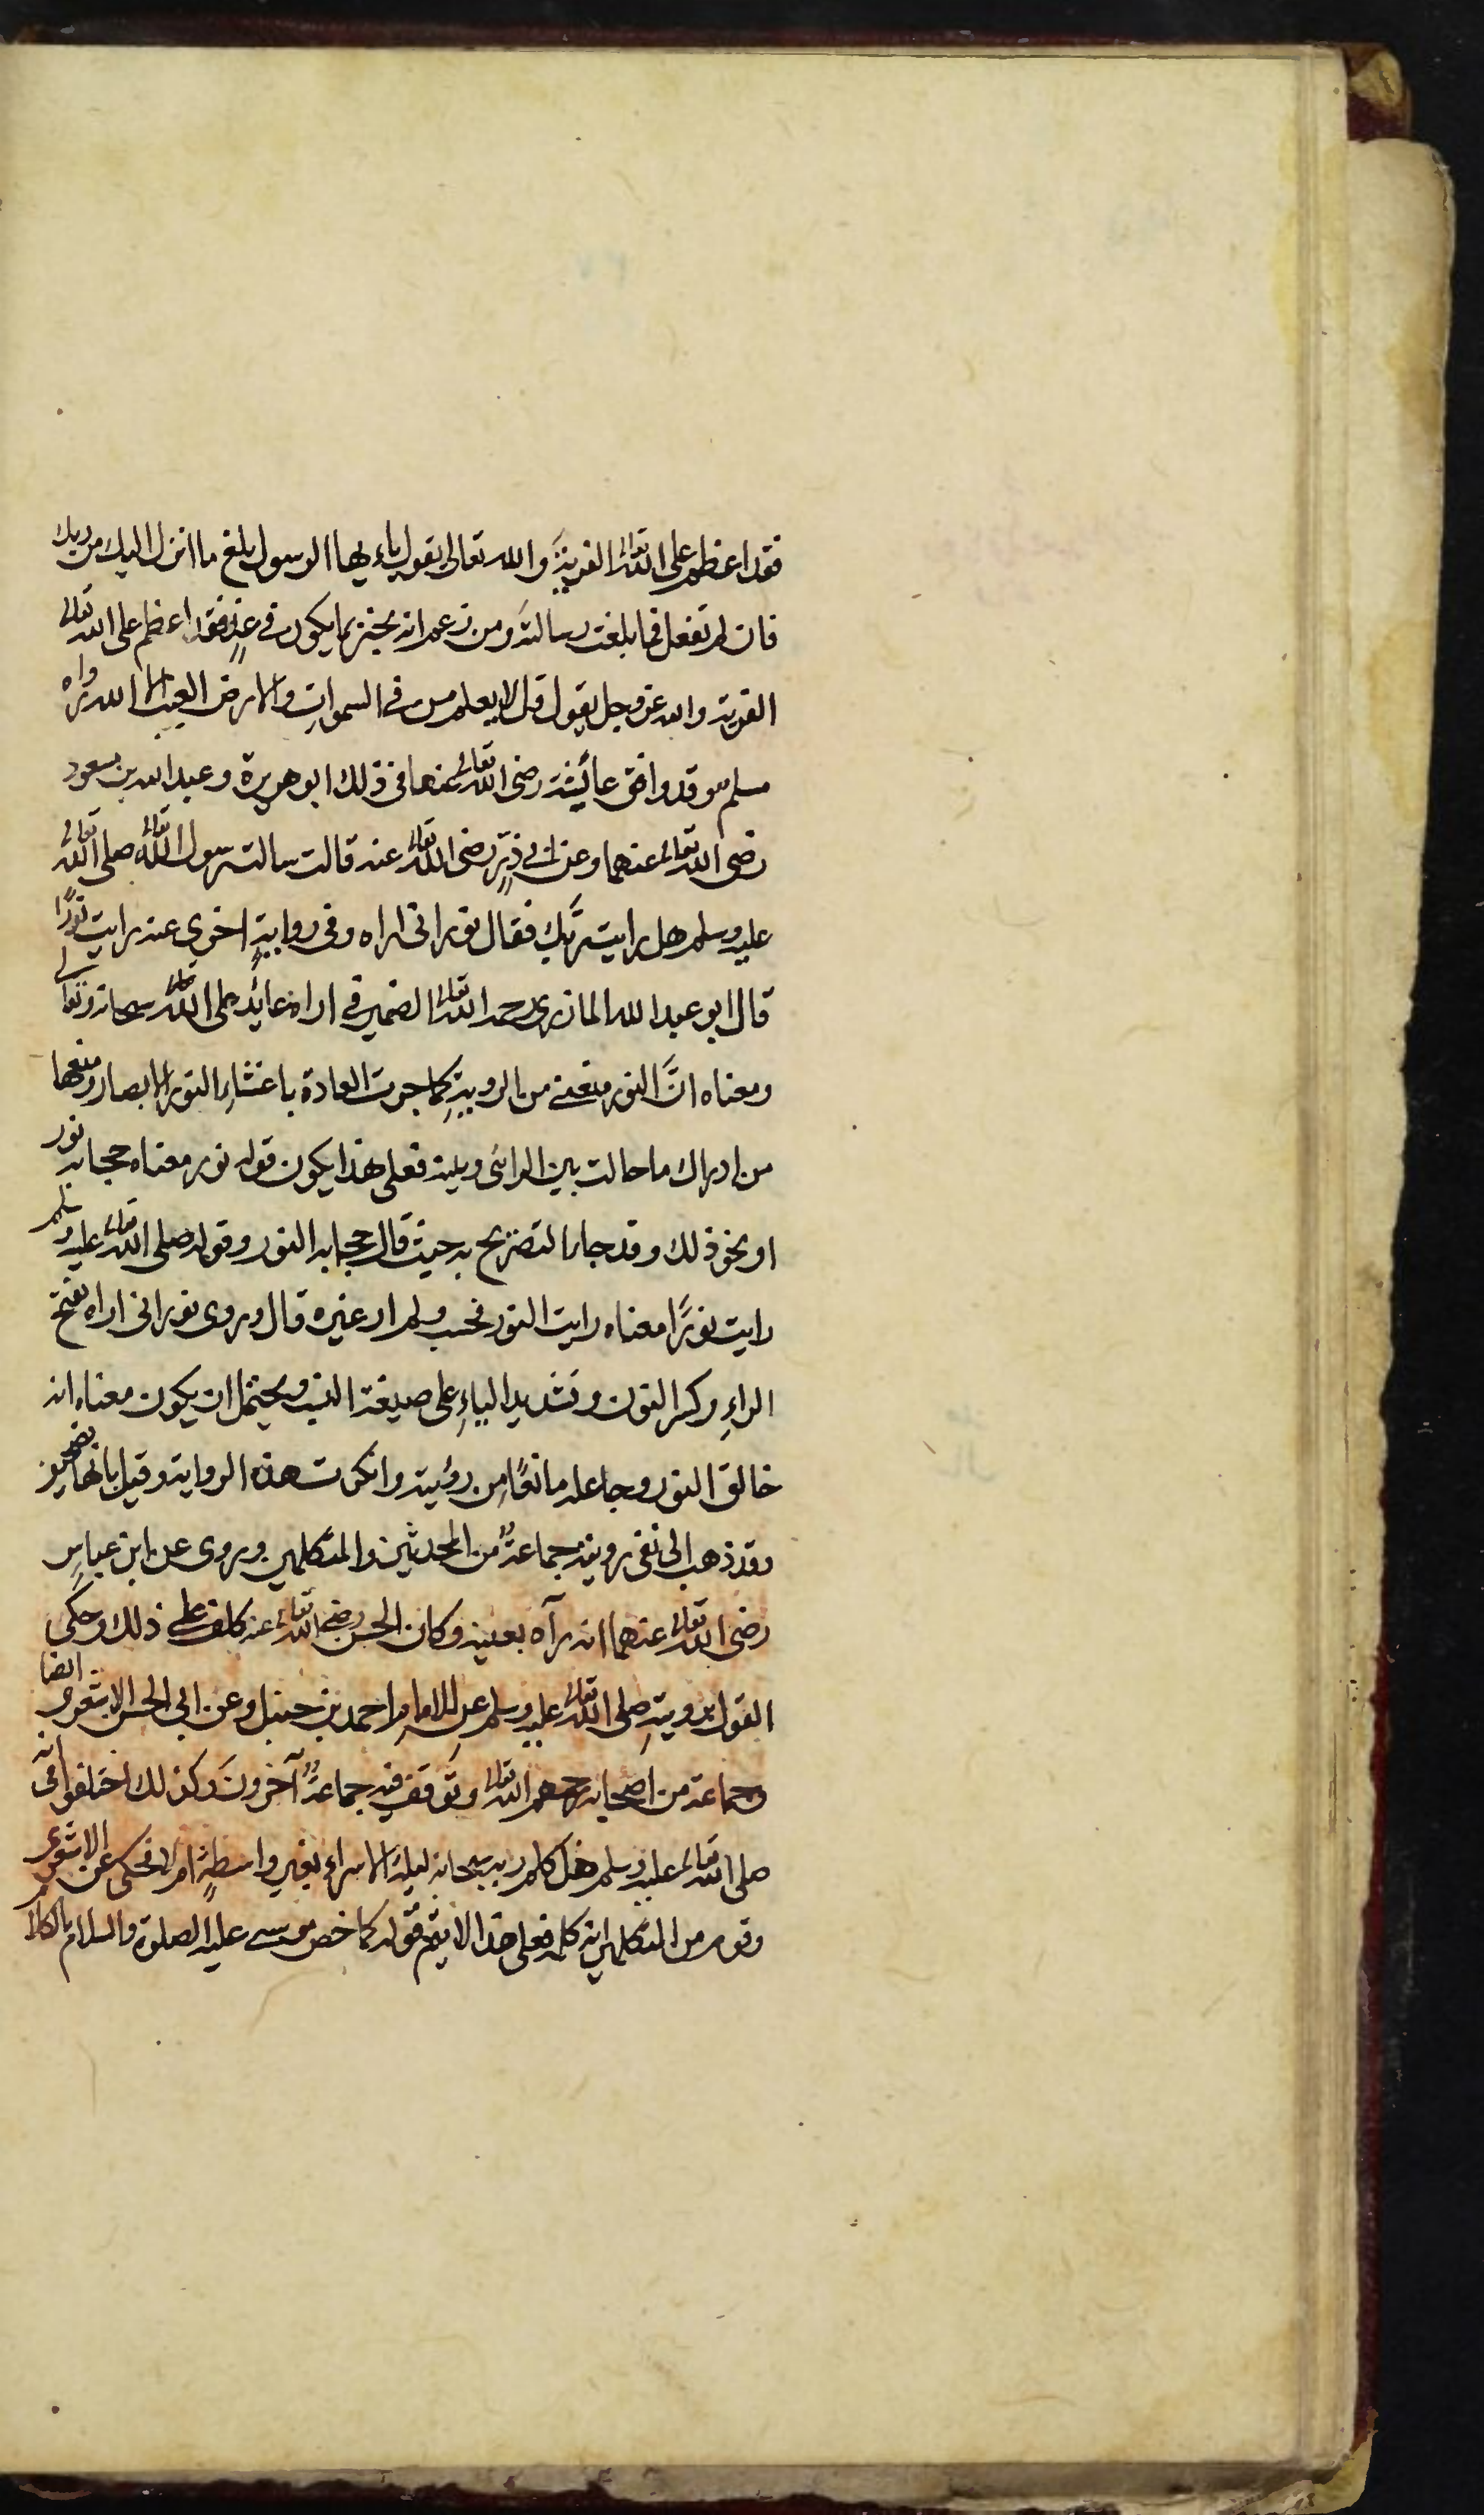 فقد اعظم على الله تعالى الفرية والله تعالى يقول ياءيها الرسول بلغ ما انزل اليك من ربك
فان لم تفعل فما بلغت رسالته ومن زعم انه يخبر بما يكون في غدٍ فقد اعظم على الله تعالى
الفرية والله عز وجل يقول قل لا يعلم من في السموات والارض الغيب الا الله رواه
مسلم وقد وافق عائشة رضى الله تعالى عنها في ذلك ابو هريرة وعبد الله بن مسعود
رضى الله تعالى عنهما وعن ابي ذرٍّ رضى الله تعالى عنه قالت سالت رسول الله تعالى صلى الله تعالى
عليه وسلم هل رايت ربّك فقال نور انى اراه وفى روايةٍ اخرى عنه رايت نورًا
قال ابو عبد الله المازرى رحمه الله تعالى الضمير في اراه عائد على الله تعالى سبحانه وتعالى
ومعناه انَّ النور منعنى من الرويةِ كما جرت العادة باغشاءِ النور الابصار ومنعها
من ادراك ما حالت بين الرائى وبينه فعلى هذا يكون قوله نور معناه حجابه نور
او نحو ذلك وقد جاء التصريح به حيث قال حجابه النور وقوله صلى الله تعالى عليه وسلم
رايت نورًا معناه رايت النور فحسب ولم ار غيره قال وروى نورانى اراه بفتح
الراءِ وكسر النون وتشديد الياءِ على صيغة النسب ويحتمل ان يكون معناه انه
خالق النور وجاعله مانعًا من رؤيته وانكرت هذه الرواية وقيل بانها تصحيف
وقد ذهب الى نفى رويته جماعةٌ من المحدثين والمتكلمين وروى عن ابن عباسٍ
رضى الله تعالى عنهما انه رآه بعينه وكان الحسن رضى الله تعالى عنه يحلف على ذلك وحكى
القول برويتهِ صلى الله تعالى عليه وسلم عن الامامِ احمد بن حنبل وعن ابي الحسن الاشعرى ايضا
وجماعة من اصحابه رحمهم الله تعالى وتوقف فيه جماعةٌ آخرونَ وكذلك اختلفوا فى انه
صلى الله تعالى عليه وسلم هل كلم ربه سبحانه ليلة الاسراء بغير واسطةٍ ام لا فحكى عن الاشعرى
وقوم من المتكلمين انه كلمه فعلى هذا لا يتم قوله كما خص موسى عليه الصلوة والسلام بالكلام